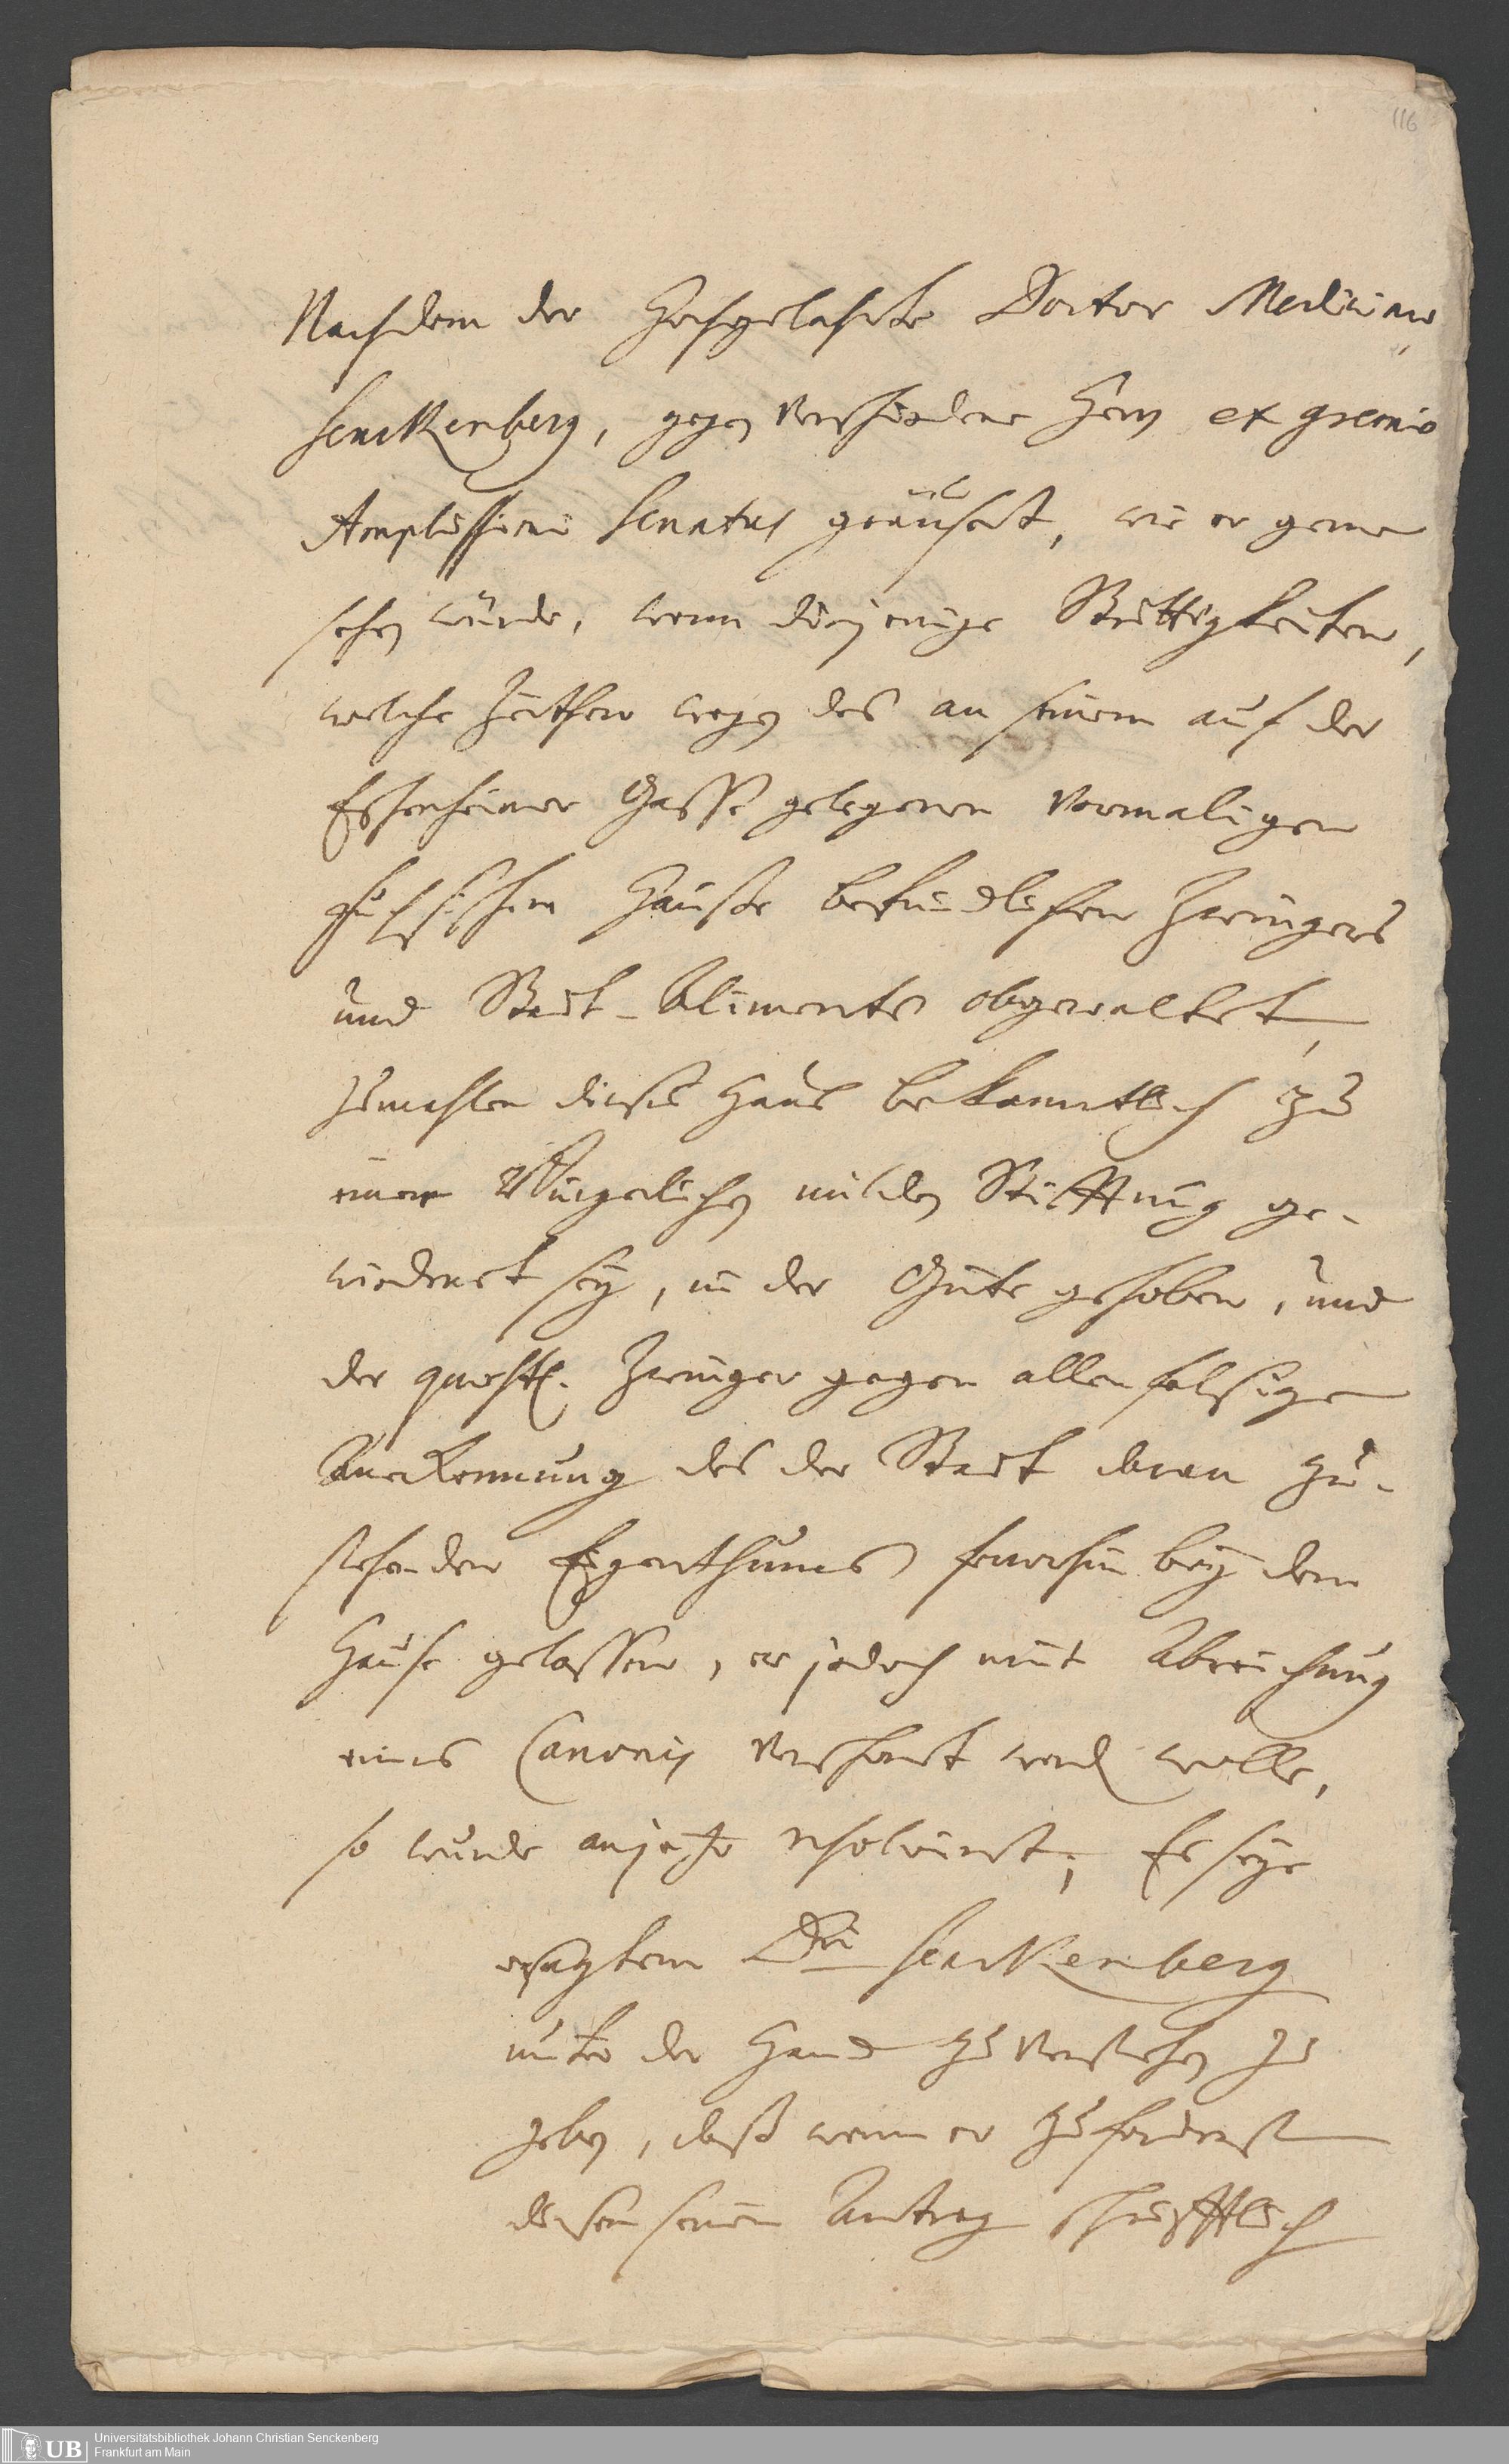 116
Nachdem der Hochgelahrte Doctor Medicinae
Senckenberg, gegen verschiedene Herrn ex gremio
Amplissimi Senatus geäusert, wie er gerne
sehen würde, wenn diejenige Strittigkeiten,
welche zeither wegen des an seinem auf der
Eschenheimer Gasse gelegenen vormaligen
Hause befindlichen Zwingers
und Stadt-Aliments obgewaltet,
zumahlen dieses Haus bekanntlich zu
einer Bürgerlichen milden Stifftung ge-
wiedmet sey, in der Güte gehoben, und
der quaest. Zwinger gegen allenfalsige
Anerkennung des der Stadt daran zu-
stehenden Eigenthums fernerhin bey dem
Hause gelassen, er jedoch mit Abreichung
eines Canonis verschont werden wolle,
so wurde anjetzo resolvirt; Es seye
ersagtem Dri Senckenberg
unter der Hand zu verstehen zu
geben, daß wenn er zuforderst
diesen seinen Antrag schrifftlich
Universitätsbibliothek Johann Christian Senckenberg
Frankfurt am Main
UB